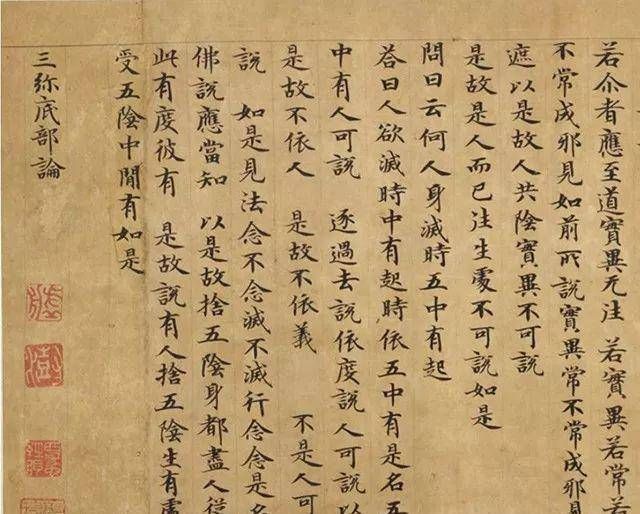 若尒者應至道實異无注　若實異若常若
不常成邪見如前所說實異常不常成邪見
遮以是故人共陰實異不可說
是故是人而已注生處不可說如是
問曰云何人身滅時五中有起
荅曰人欲滅時中有起時依五中有是名五
中有人可說　逐過去說依度說人可說以
是故不依人　是故不依義　不是人可
說　如是見法念不念滅不滅行念念是名
佛說應當知　以是故捨五陰身都盡人從
此有度彼有　是故說有人捨五陰生有處
受五陰中閒有如是
三弥底部論